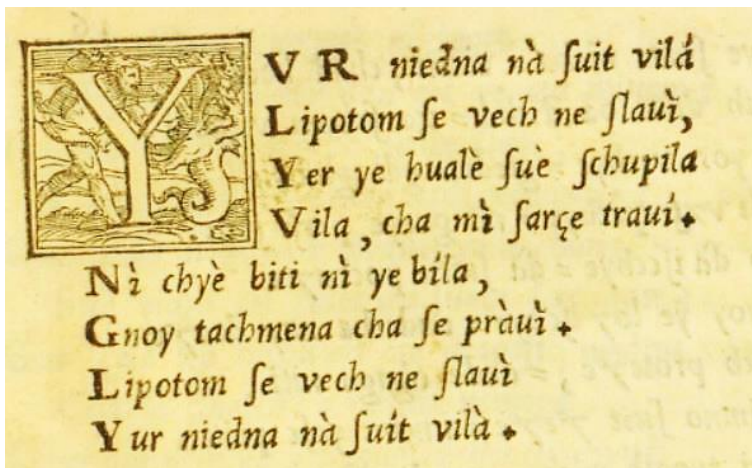 YVR niedna nà ſuit vilá
Lipotom ſe vech ne ſlauì,
Yer ye hualè ſuè ſchupila
Vila, cha mì ſarçe trauí.
Nì chyè biti nì ye bíla,
Gnoy tachmena cha ſe pràuì.
Lipotom ſe vech ne ſlauì
Yur niedna nà ſuít vilà.